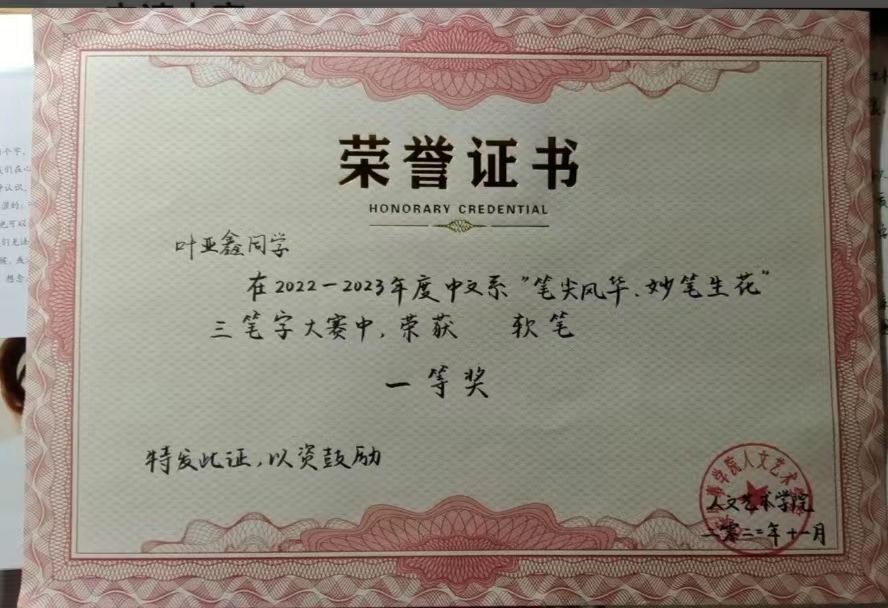 荣誉证书
HONORARY CREDENTIAL
叶亚鑫同学
在2022-2023年度中文系"笔尖风华、妙笔生花"
三笔字大赛中,荣获 软笔
一等奖
特发此证,以资鼓励
学院人文艺术
人文艺术学院
二零二二年十一月